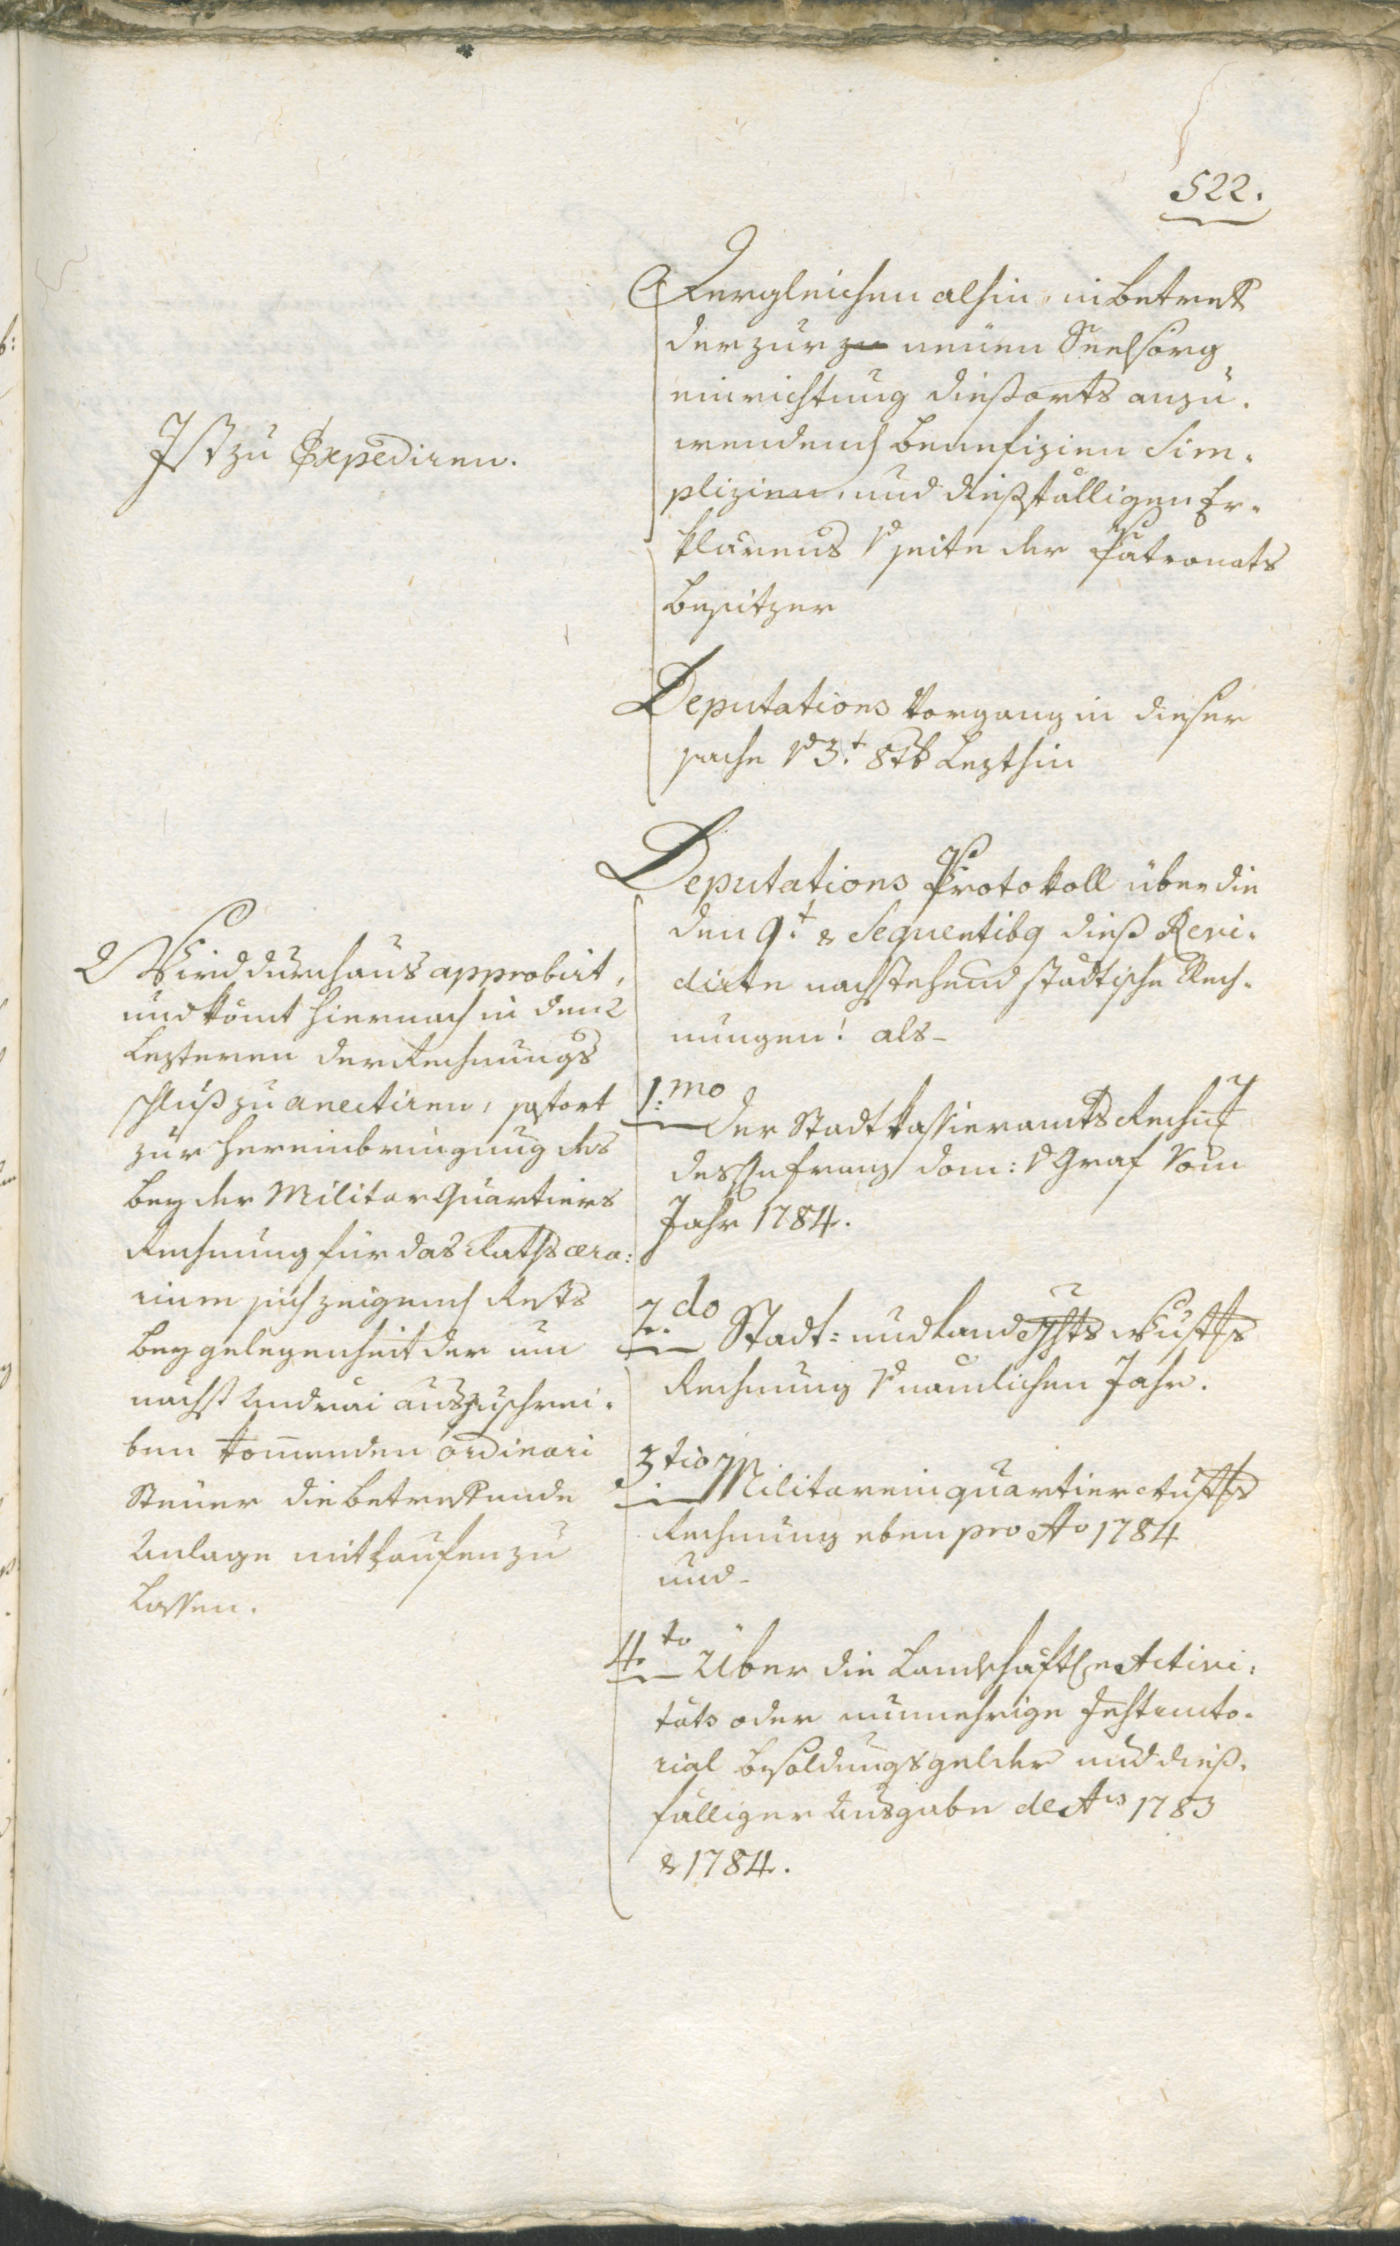 522.
Dergleichen alhin, in betref
der zur zu neuen Seelsorg
einrichtung dießorts anzu-
wendend benefizien Sim-
plizien, und dießfälligen Er-
klärens v seite der Patronats
besitzer
Ist zu Expediren.
Deputations Vorgang in dieser
sache v 3.t 8tb lezthin
Deputations Protokoll über die
den 9.t & Sequentibg dieß Revi-
dirte nachstehend städtische Rech-
nungen! als-
1:mo der Stadtkassieramts Rechng
des Franz dom: v Graf Vom
Jahr 1784.
2.do Stadt- und Land
Rechnung v nämlichen Jahr.
3.tio Militareinquartier
Rechnung eben pro Ao 1784
und-
4.to Über die Landschaftle Activi-
täts oder nunmehrige
rial besoldungsgelder und dieß-
fälliger Ausgabe de Ais 1783
& 1784.
Wird durchaus approbirt,
und kömt hiernach in den 2
lezteren der Rechnungs
schluß zu anectiren, sofort
zur hereinbringung des
bey der Militar Quartiers
Rechnung für das Raths æra:
rium sich zeigend Rests
bey gelegenheit der um
nächst Andreai auszuschrei-
ben kom̄enden ordinari
Steuer die betreffende
Anlage mitlaufen zu
lassen.